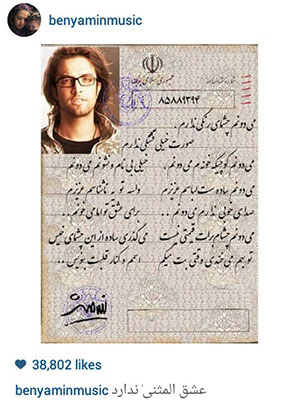 benyaminmusic
جمهوری اسلامی ایران
۸۵۸۸۹۳۹۴
می دونم چشمای رنگی ندارم
صورت خیلی قشنگی ندارم
می دونم کوچیکه خونه م می دونم
خیلی بی نام و نشونم می دونم
می دونم ساده ست لباسم عزیزم
واسه تو یه ناشناسم عزیزم
صدای خوبی ندارم می دونم ..
برای عشق تو اما می خونم ..
می دونم چشام برات قیمتی نیست
می گذری ساده از این چشمای خیس
تو بهم می خندی وقتی بت میگم
اسمم و کنار قلبت بنویس ..
38,802 likes
benyaminmusic عشق المثنیٰ ندارد